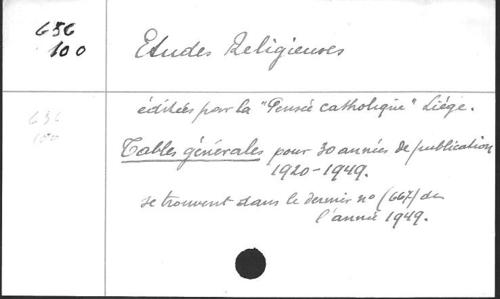 656
100
Etudes Religieuses
éditées par la "Pensée catholique" Liége.
656
100
Tables générales pour 30 années de publication
1920-1949.
se trouvent dans le dernier no (667) de
l'année 1949.